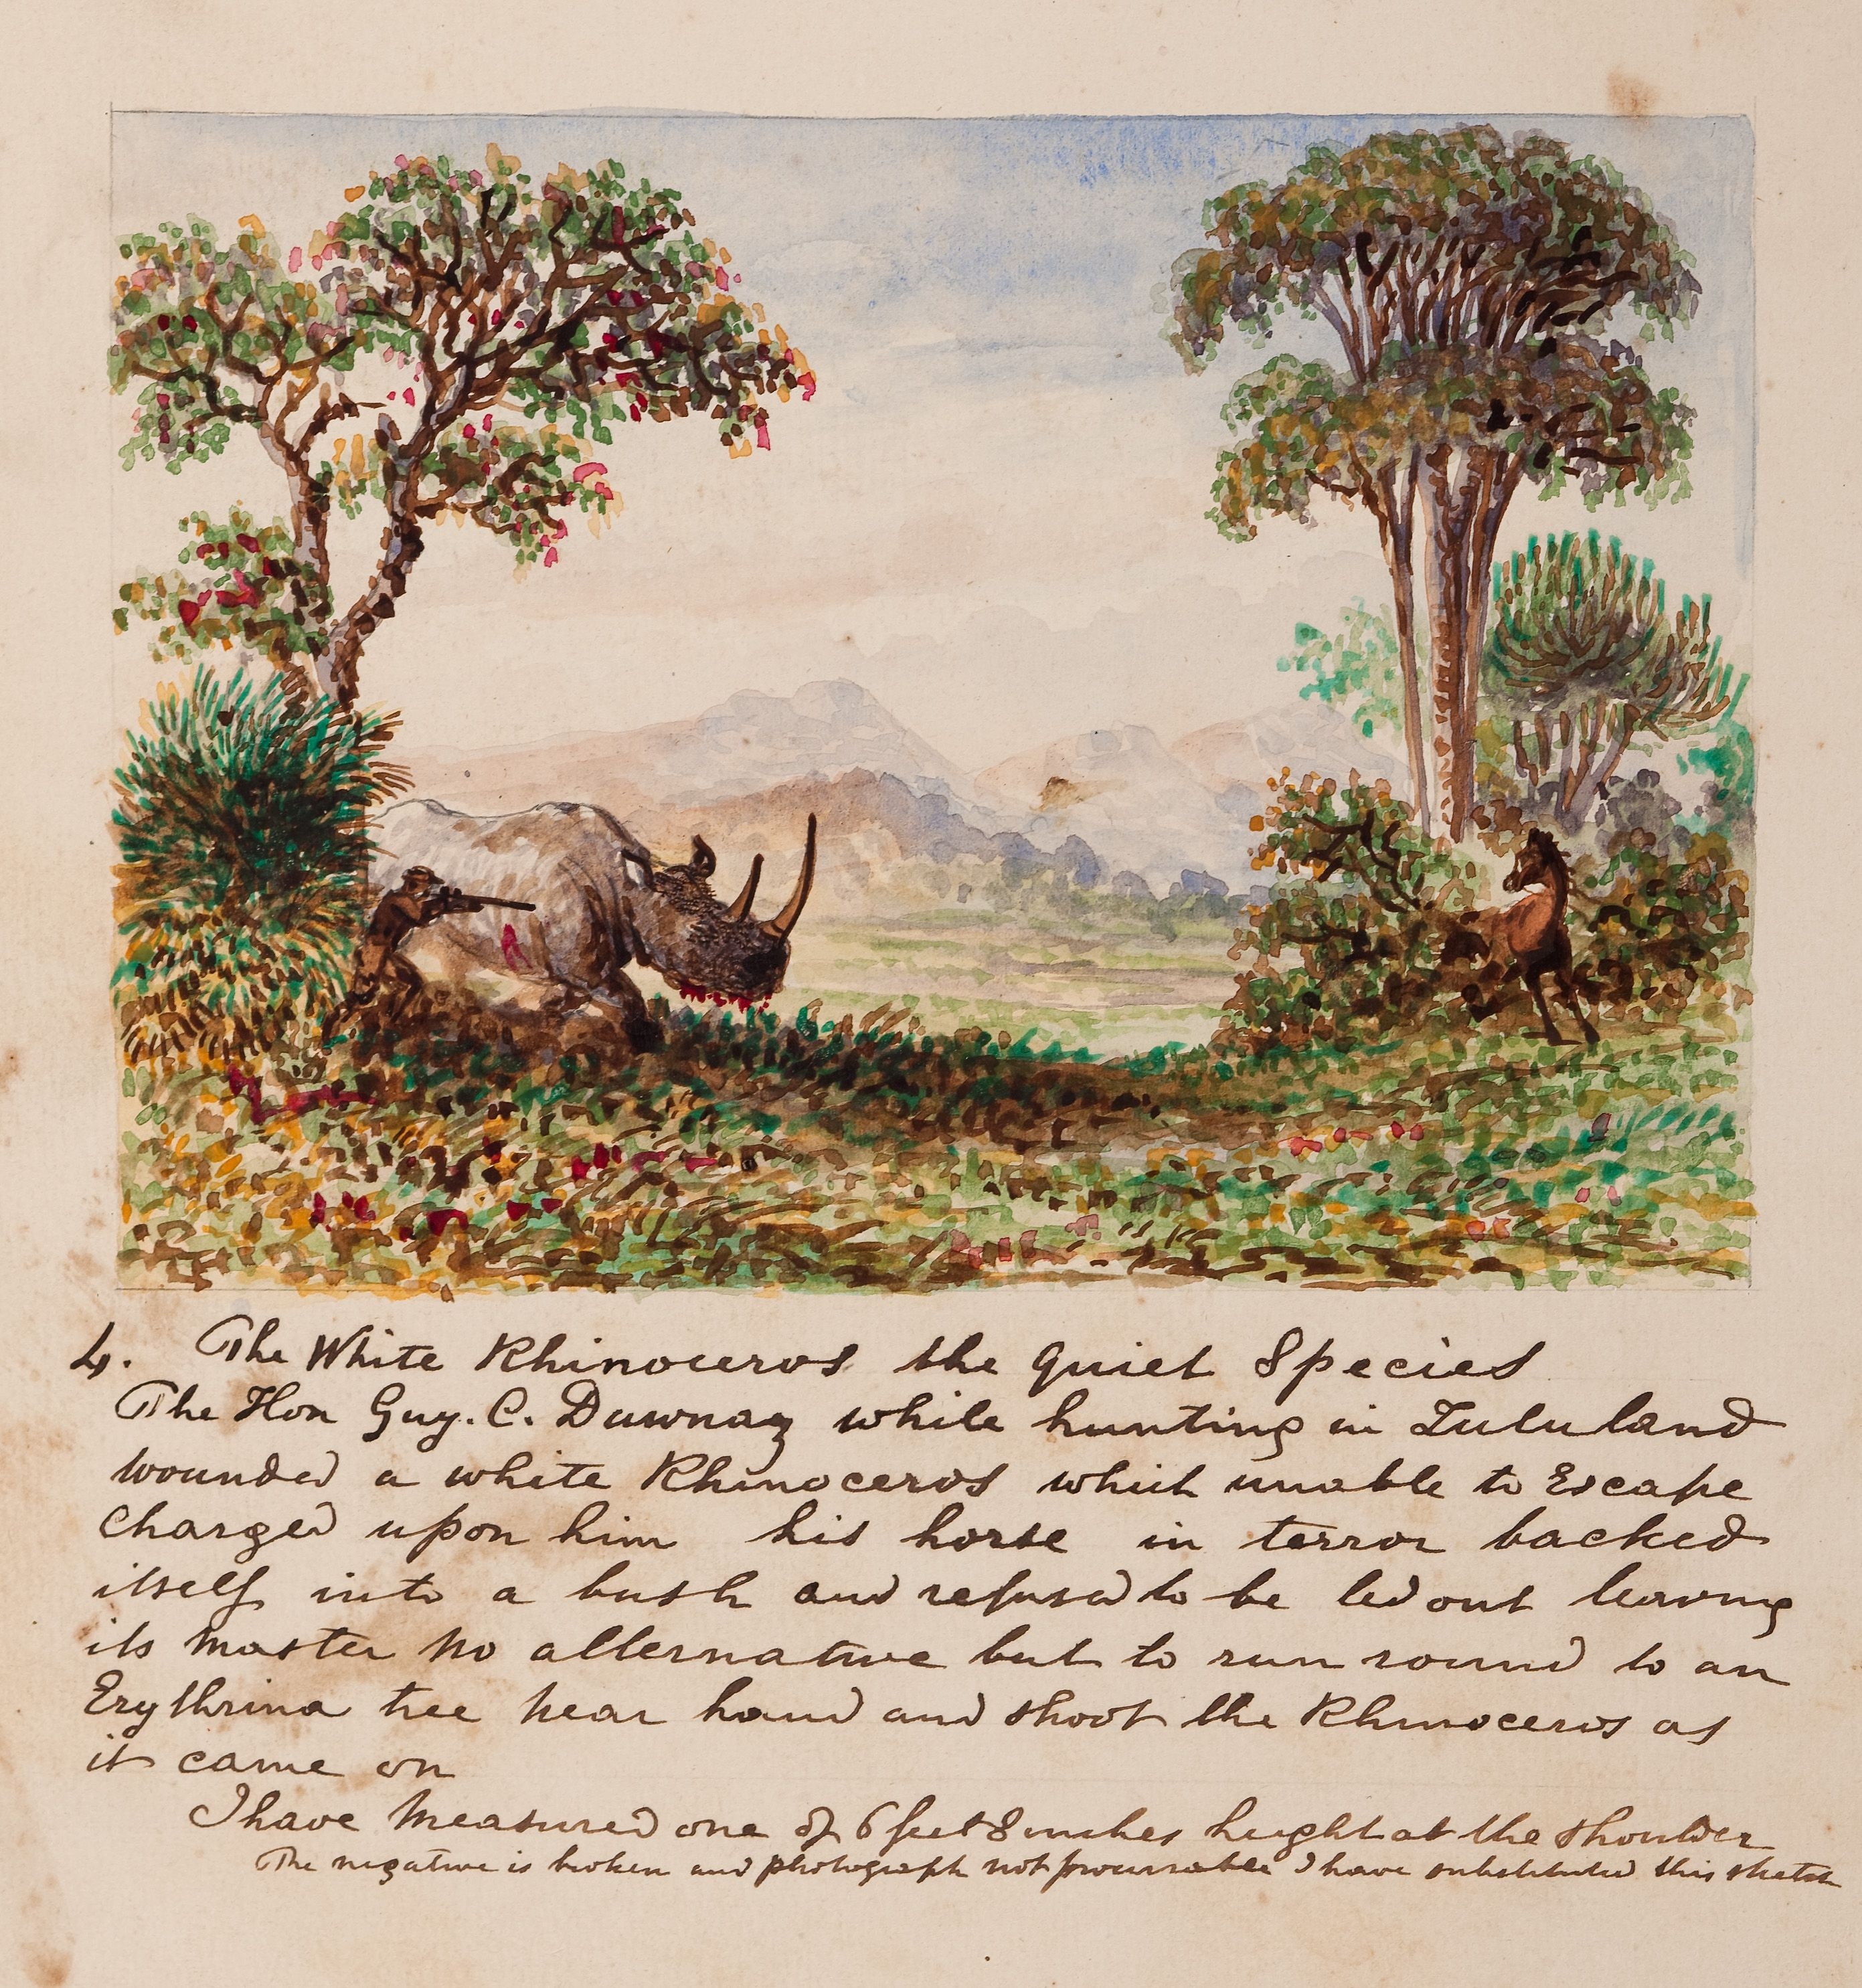 4. The White Rhinoceros the quiet Species
The Hon Guy. C. Dawnay while hunting in Zululand
wounded a white Rhinoceros which unable to Escape
charged upon him his horse in terror backed
itself into a bush and refused to be led out leaving
its master no alternative but to run round to an
Erythrina tree near hand and shoot the Rhinoceros as
it came on
I have measured one of 6 feet 8 inches height at the shoulder
The negative is broken and photograph not procurable I have substituted this sketch